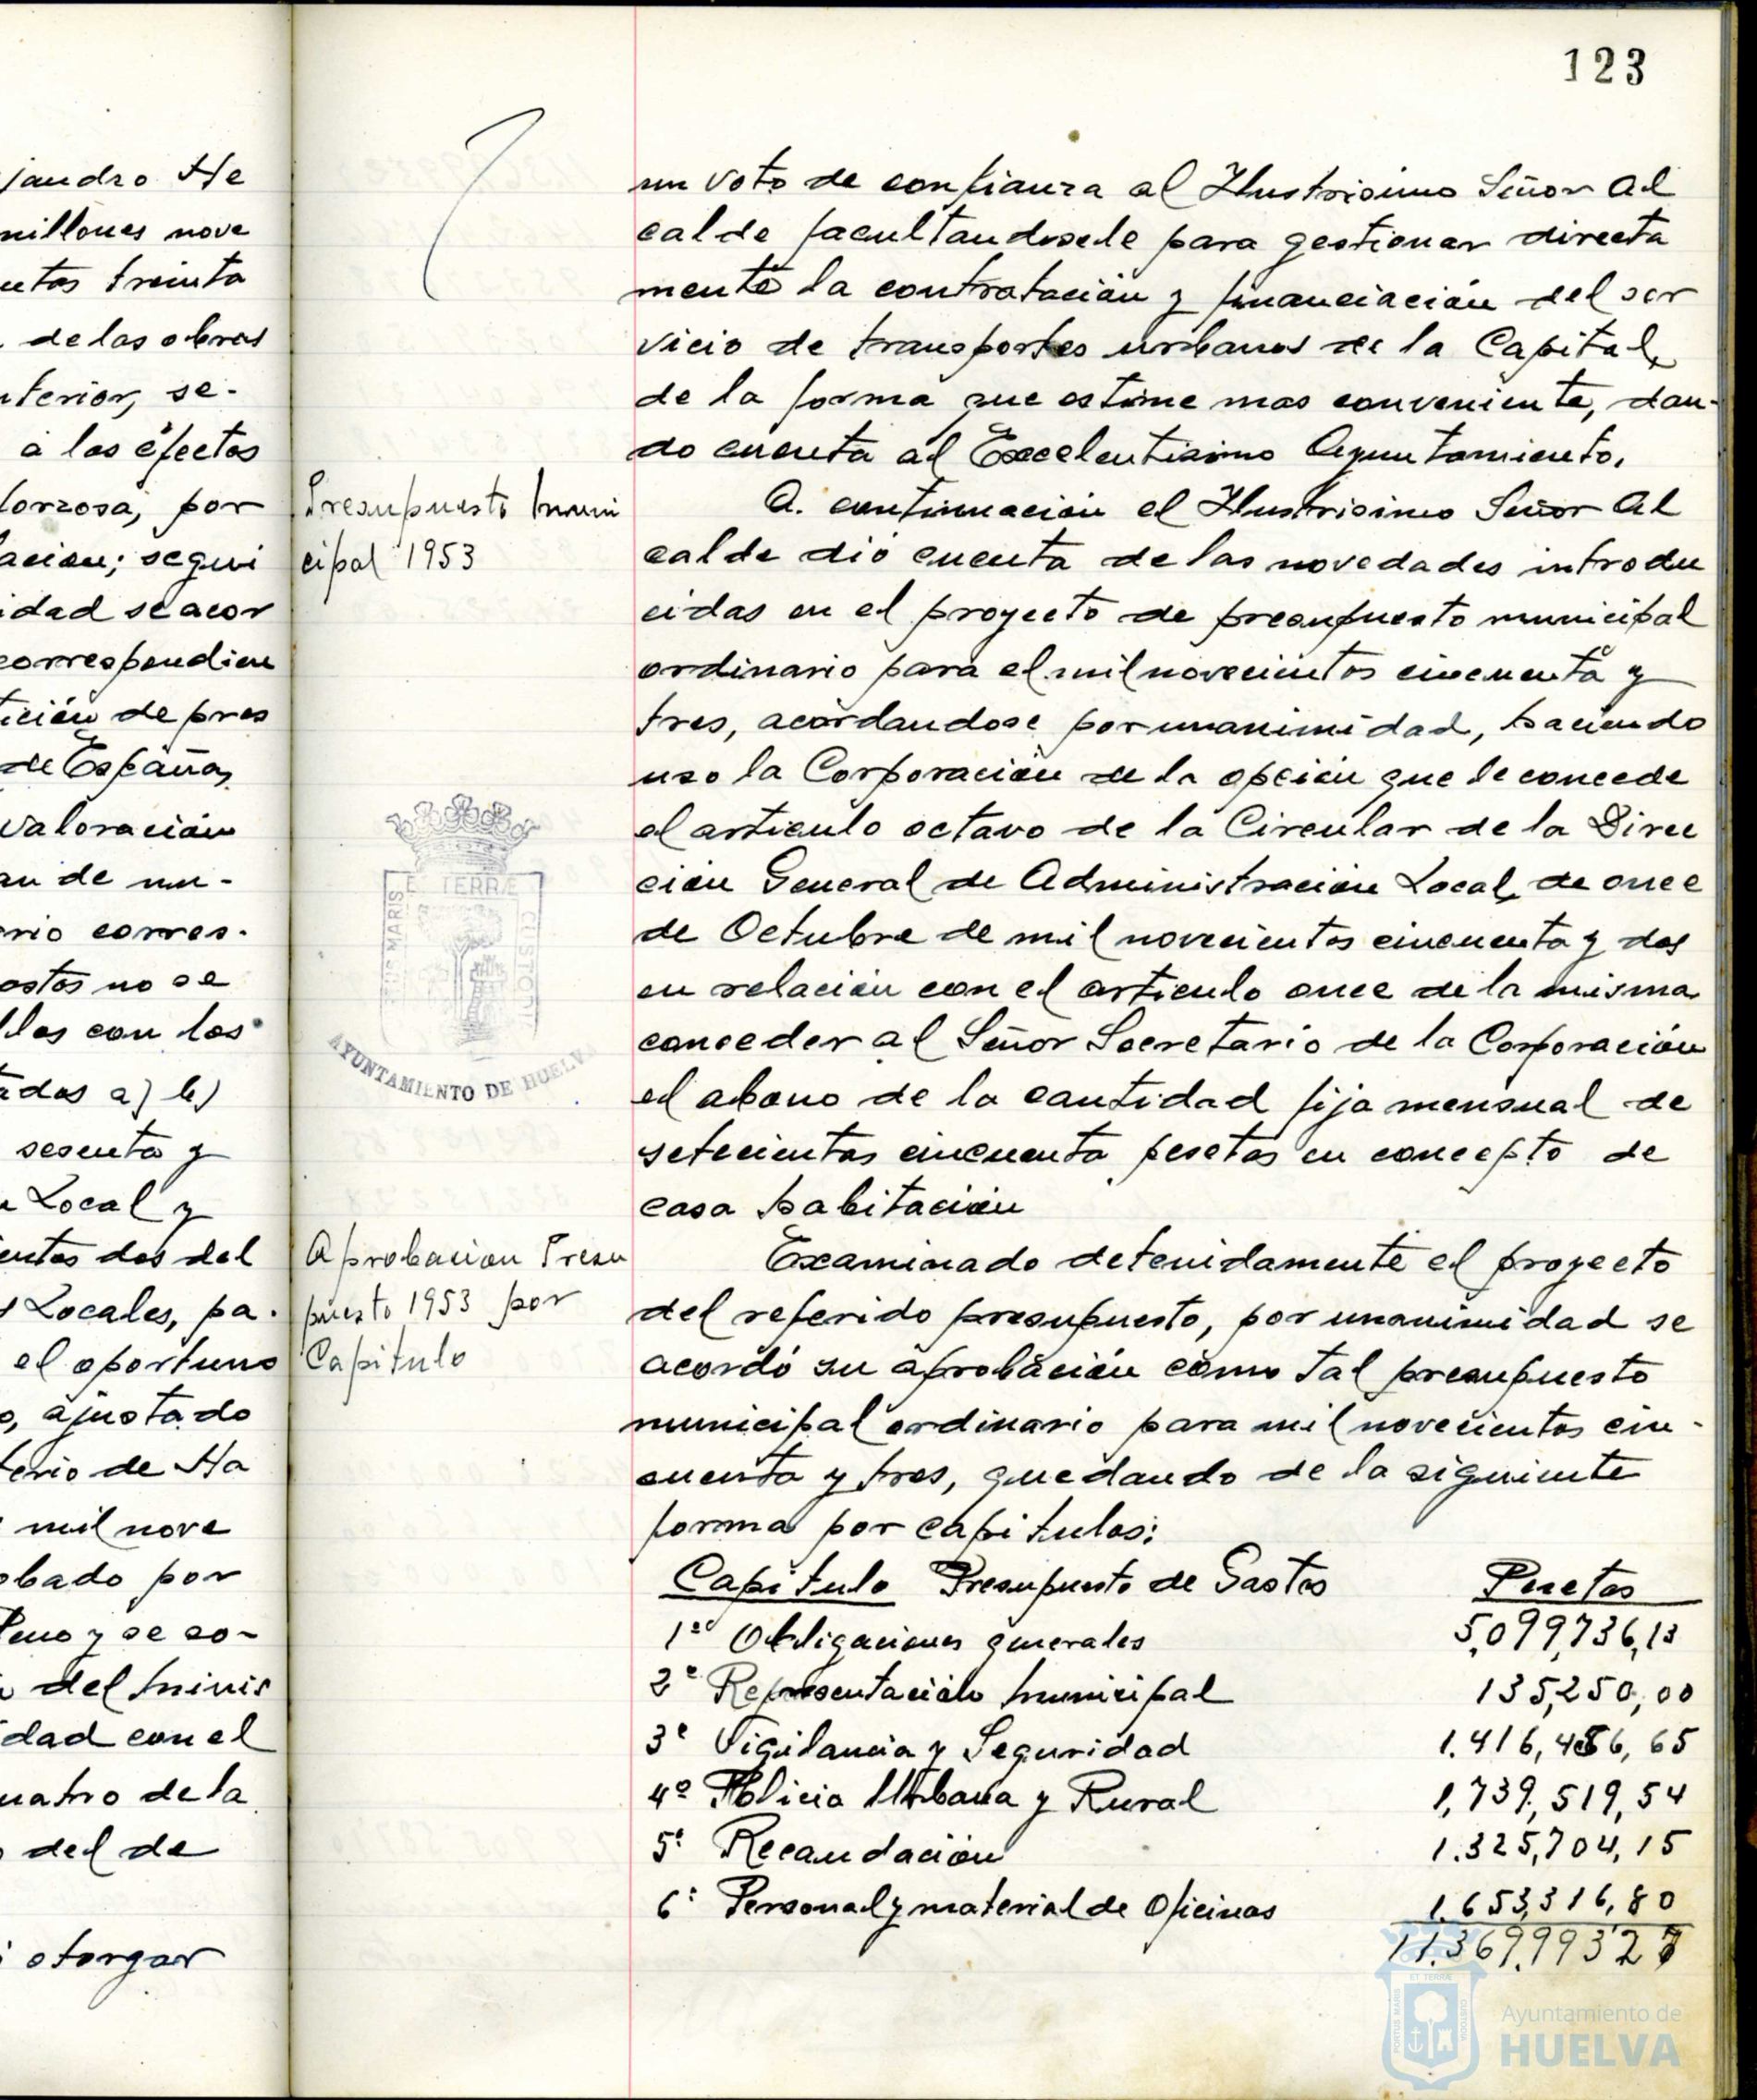 123
jandro He
millones nove
entos treinta
de las obras
nterior, se-
a los efectos
forzosa, por
lacion; segui
idad se acor
correspondien
tición de pres
de España,
valoración
an de un-
ario corres-
ostos no se
llos con los
tados a) b)
sesenta y
n Local y
entos dos del
s Locales, pa-
el oportuno
o, ajustado
terio de Ha
mil nove
obado por
Pleno y se so-
del Minis
idad con el
uatro de la
del de
otorgar
un voto de confianza al Ilustrisimo Señor Al
calde facultandosele para gestionar directa
mente la contratación y financiación del ser
vicio de transportes urbanos de la Capital,
de la forma que estime mas conveniente, dan-
do cuenta al Excelentisimo Ayuntamiento.
Presupuesto Muni
cipal 1953
A continuación el Ilustrisimo Señor Al
calde dió cuenta de las novedades introdu
cidas en el proyecto de presupuesto municipal
ordinario para el mil novecientos cincuenta y
tres, acordandose por unanimidad, haciendo
uso la Corporación de la opción que le concede
el articulo octavo de la Circular de la Direc
ción General de Administración Local, de once
de Octubre de mil novecientos cincuenta y dos
en relación con el articulo once de la misma,
conceder al Señor Secretario de la Corporación
el abono de la cantidad fija mensual de
setecientas cincuenta pesetas en concepto de
casa habitación
E. TERRÆ
PORTUS MARIS
CUSTODI
AYUNTAMIENTO DE HUELVA
Aprobacion Presu
puesto 1953 por
Capitulo
Examinado detenidamente el proyecto
del referido presupuesto, por unanimidad se
acordó su aprobación como tal presupuesto
municipal ordinario para mil novecientos cin-
cuenta y tres, quedando de la siguiente
forma por capitulos:
Capitulo Presupuesto de Gastos Pesetas
1º Obligaciones generales 5,099,736,13
2º Representación Municipal 135,250,00
3º Vigilancia y Seguridad 1.416,466,65
4º Policia Urbana y Rural 1,739,519,54
5º Recaudación 1.325,704,15
6º Personal y material de Oficinas 1.653,316,80
11.369.993'27
ET TERRÆ
PORTUS MARIS
CUSTODIA
Ayuntamiento de
HUELVA